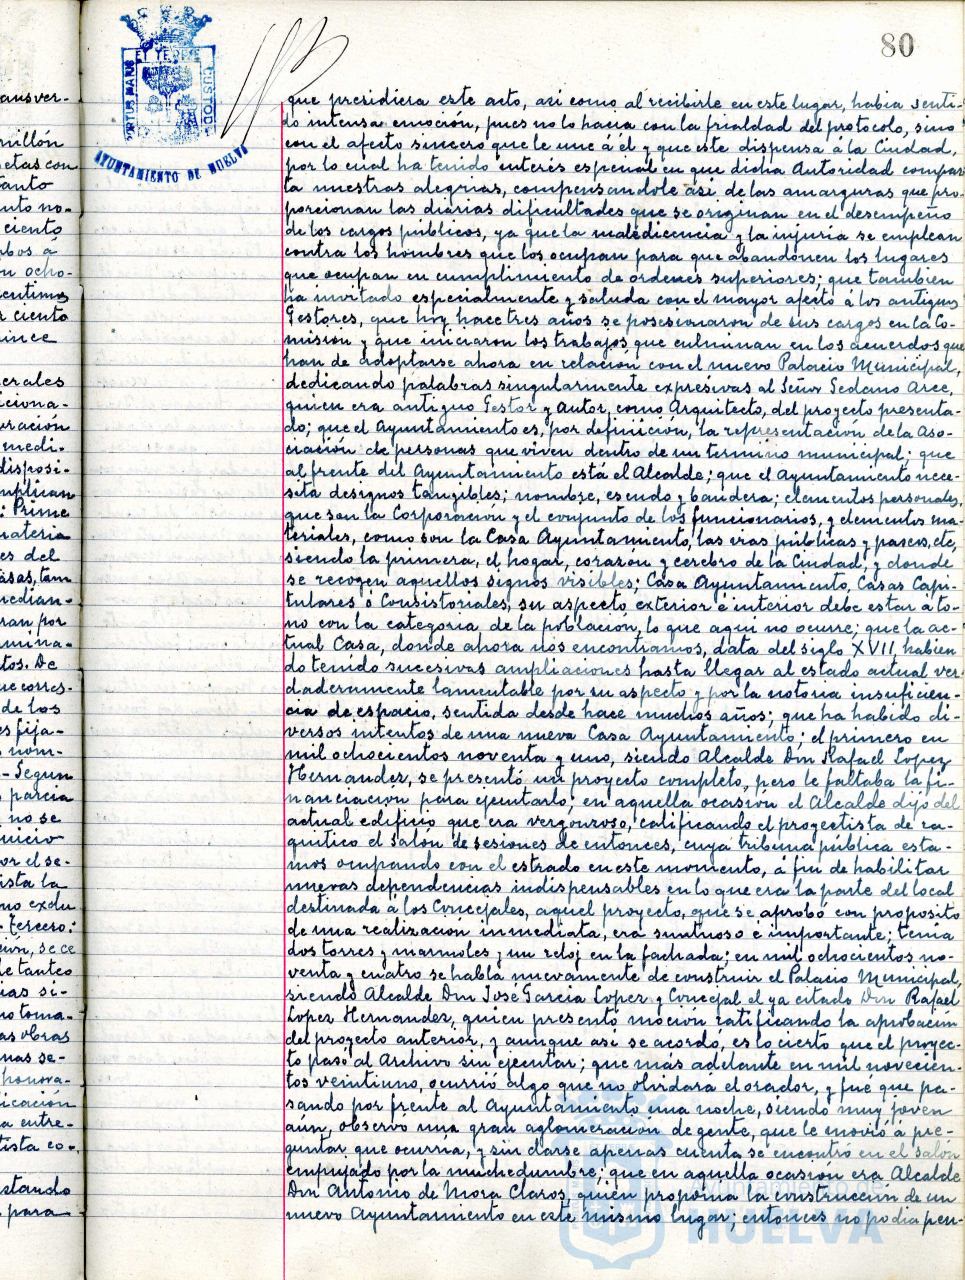 80
ET TERRE
PORTUS MARIS
CUSTODI
AYUNTAMIENTO DE HUELVA
que presidiera este acto, así como al recibirle en este lugar, habia senti-
do intensa emoción, pues no lo hacia con la frialdad del protocolo, sino
con el afecto sincero que le une á él y que este dispensa á la Ciudad,
por lo cual ha tenido interés especial en que dicha Autoridad compar
ta nuestras alegrias, compensandole así de las amarguras que pro-
porcionan las diarias dificultades que se originan en el desempeño
de los cargos públicos, ya que la maledicencia y la injuria se emplean
contra los hombres que los ocupan para que abandonen los lugares
que ocupan en cumplimiento de ordenes superiores; que tambien
ha invitado especialmente y saluda con el mayor afecto á los antiguos
Gestores, que hoy hace tres años se posesionaron de sus cargos en la Co-
misión y que iniciaron los trabajos que culminan en los acuerdos que
han de adoptarse ahora en relación con el nuevo Palacio Municipal,
dedicando palabras singularmente expresivas al Señor Sedano Arce,
quien era antiguo Gestor y autor, como Arquitecto, del proyecto presenta-
do; que el Ayuntamiento es, por definición, la representación de la Aso-
ciación de personas que viven dentro de un termino municipal; que
al frente del Ayuntamiento está el Alcalde; que el Ayuntamiento nece-
sita designos tangibles; nombre, escudo y bandera; elementos personales,
que son la Corporación y el conjunto de los funcionarios, y elementos ma-
teriales, como son la Casa Ayuntamiento, las vias públicas y paseos, etc,
siendo la primera, el hogar, corazón y cerebro de la Ciudad, y donde
se recogen aquellos signos visibles; Casa Ayuntamiento, Casas Capi-
tulares ó Consistoriales, su aspecto exterior é interior debe estar á to-
no con la categoria de la población, lo que aquí no ocurre; que la ac-
tual Casa, donde ahora nos encontramos, data del siglo XVII, habien
do tenido sucesivas ampliaciones hasta llegar al estado actual ver-
daderamente lamentable por su aspecto y por la notoria insuficien-
cia de espacio, sentida desde hace muchos años; que ha habido di-
versos intentos de una nueva Casa Ayuntamiento; el primero en
mil ochocientos noventa y uno, siendo Alcalde Don Rafael Lopez
Hernandez, se presentó un proyecto completo, pero le faltaba la fi-
nanciación para ejecutarlo; en aquella ocasión el Alcalde dijo del
actual edificio que era vergonzoso, calificando el proyectista de ra-
quitico el Salón de sesiones de entonces, cuya tribuna pública esta-
mos ocupando con el estrado en este momento, á fin de habilitar
nuevas dependencias indispensables en lo que era la parte del local
destinada á los Concejales, aquel proyecto, que se aprobó con proposito
de una realizacion inmediata, era suntuoso é importante; tenia
dos torres y marmoles y un reloj en la fachada; en mil ochocientos no-
venta y cuatro se habla nuevamente de construir el Palacio Municipal,
siendo Alcalde Don José Garcia Lopez y Concejal el ya citado Don Rafael
Lopez Hernandez, quien presentó moción ratificando la aprobación
del proyecto anterior, y aunque así se acordo, es lo cierto que el proyec-
to pasó al Archivo sin ejecutar; que más adelante en mil novecien-
tos veintiuno, ocurrió algo que no olvidara el orador, y fué que pa-
sando por frente al Ayuntamiento una noche, siendo muy joven
aún, observo una gran aglomeración de gente, que le movió á pre-
guntar que ocurría, y sin darse apenas cuenta se encontró en el salón
empujado por la muchedumbre; que en aquella ocasión era Alcalde
Don Antonio de Mora Claros, quién proponia la construcción de un
nuevo Ayuntamiento en este mismo lugar; entonces no podia pen-
Ayuntamiento de
HUELVA